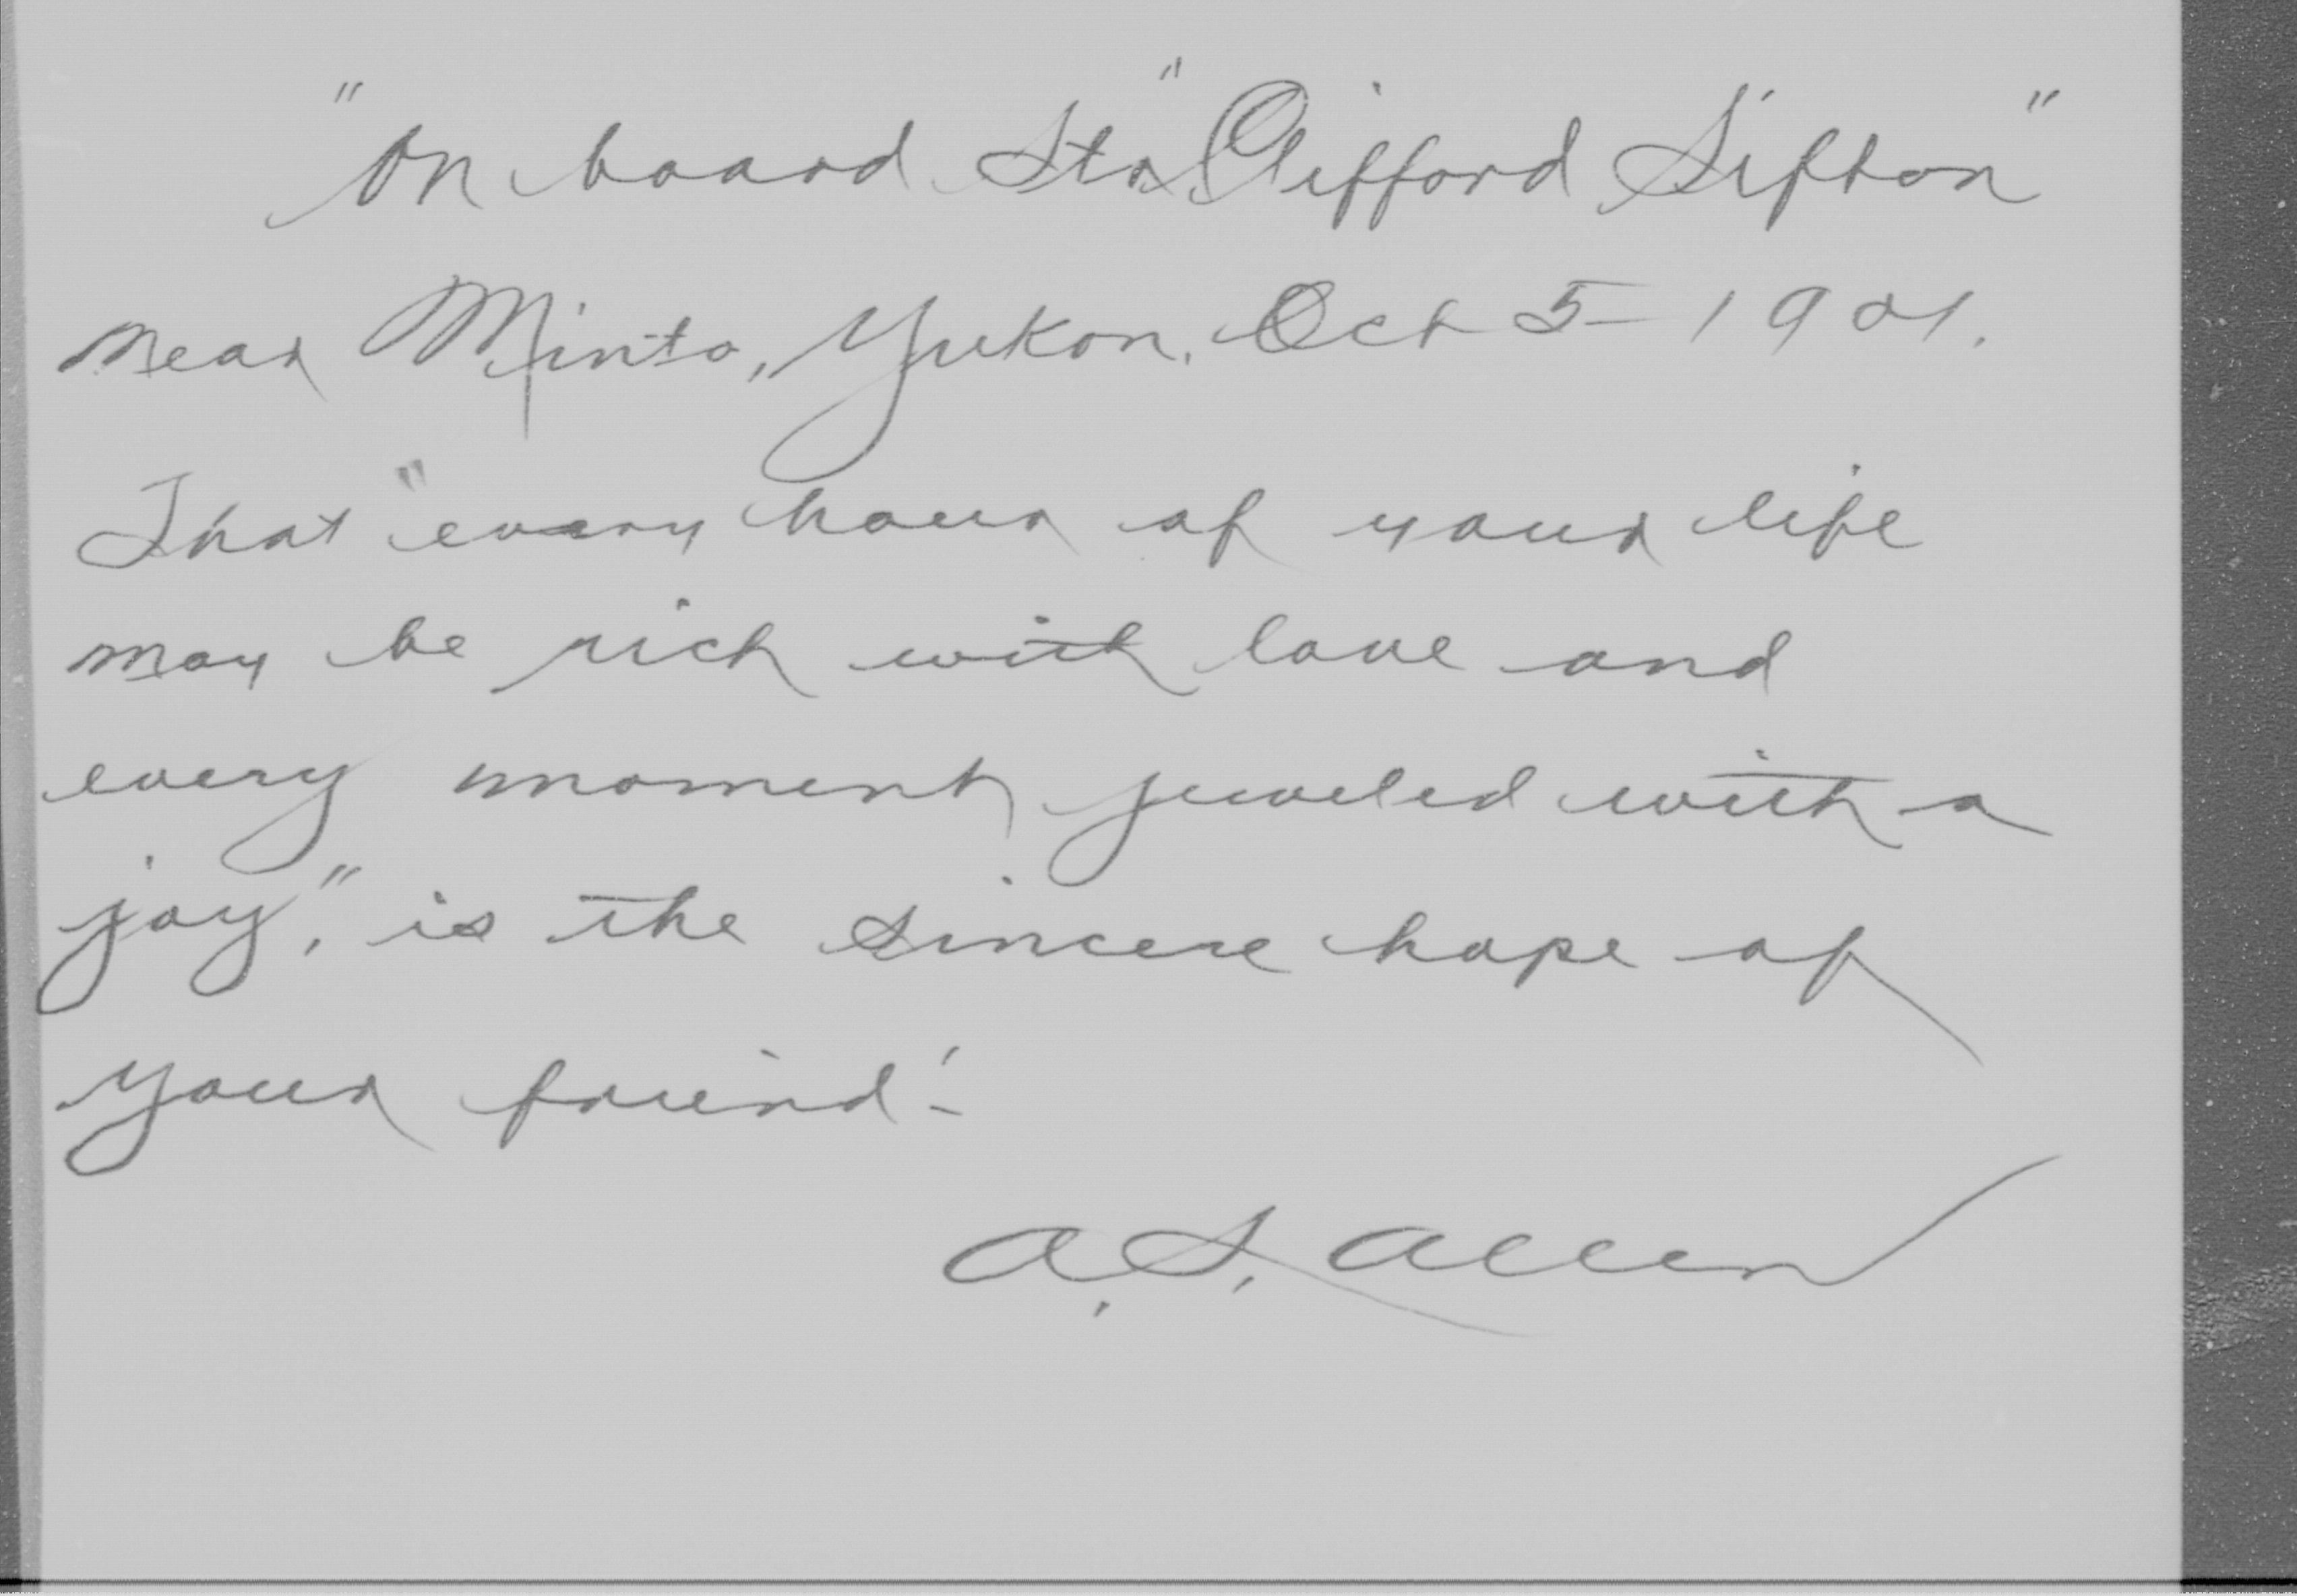 "On board Str "Clifford Sifton"
near Minto, Yukon, Oct 5 - 1901.
That "every hour of your life
may be rich with love and
every moment jeweled with a
joy," is the sincere hope of
your friend:-
A. S. Allen